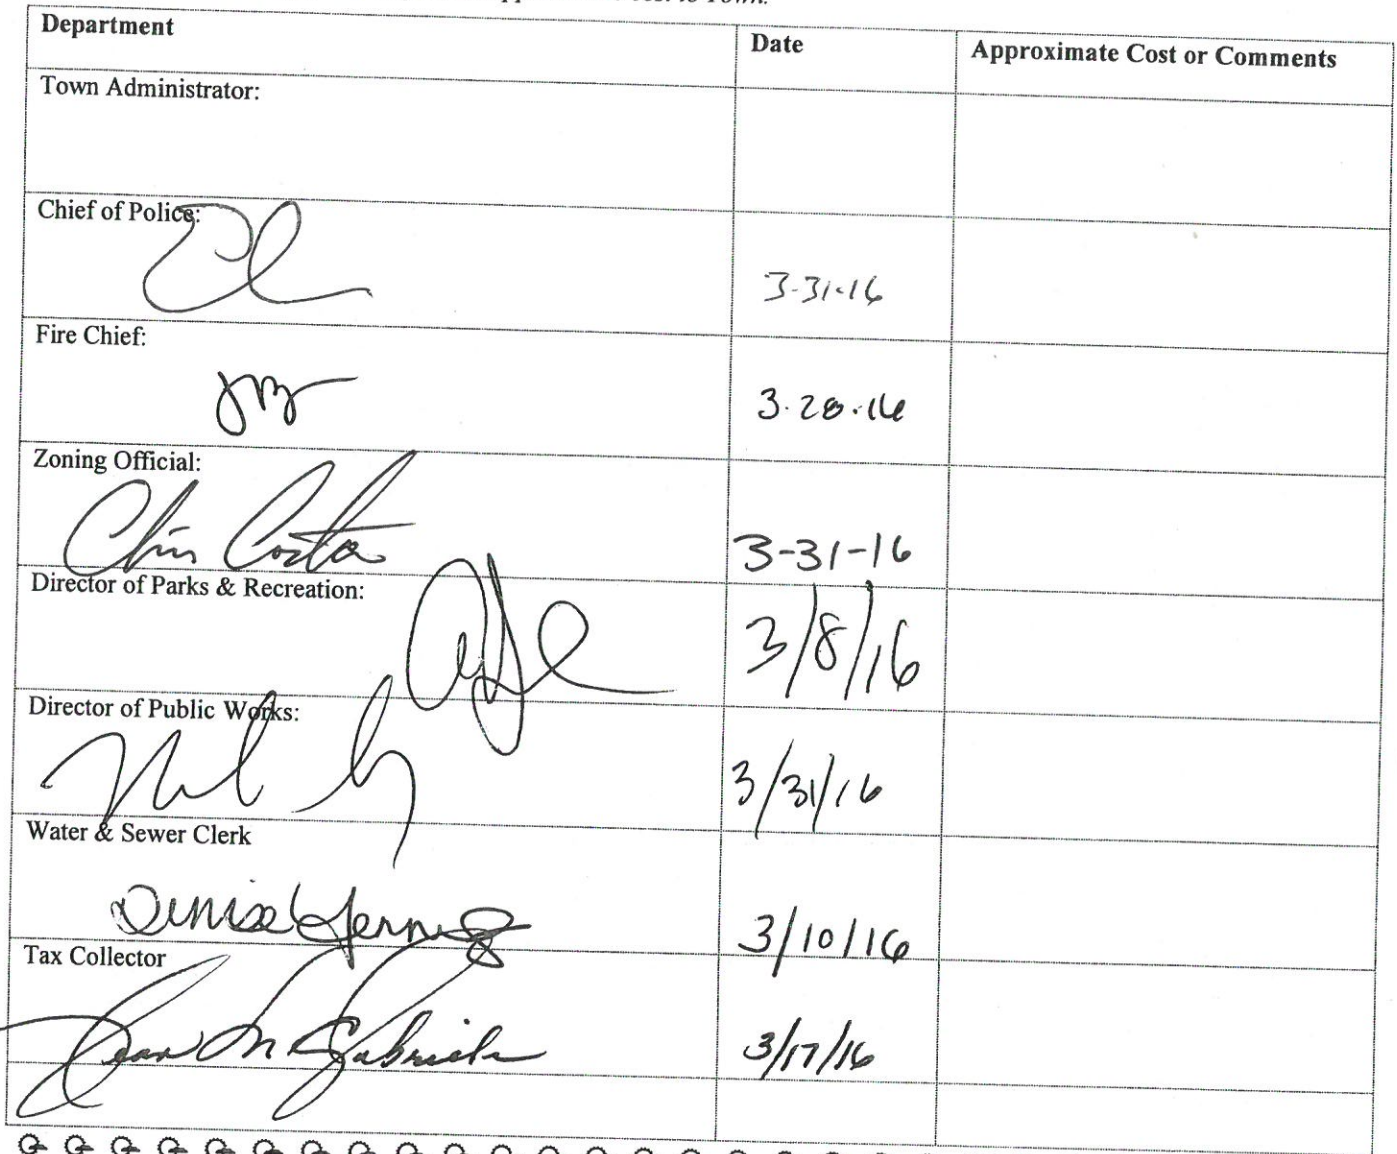 to Town.
Department Date Approximate Cost or Comments
Town Administrator:
Chief of Police:
3-31-16
Fire Chief:
3.28.16
Zoning Official:
Chris Costa 3-31-16
Director of Parks & Recreation:
3/8/16
Director of Public Works:
3/31/16
Water & Sewer Clerk
Denise 3/10/16
Tax Collector
Jean M Gabriele 3/17/16